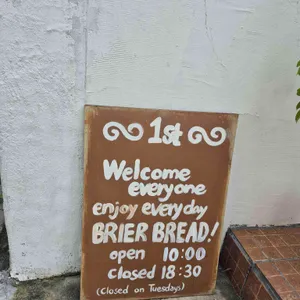 1st
Welcome
everyone
enjoy everyday
BRIER BREAD!
open 10:00
closed 18:30
(Closed on Tuesdays)